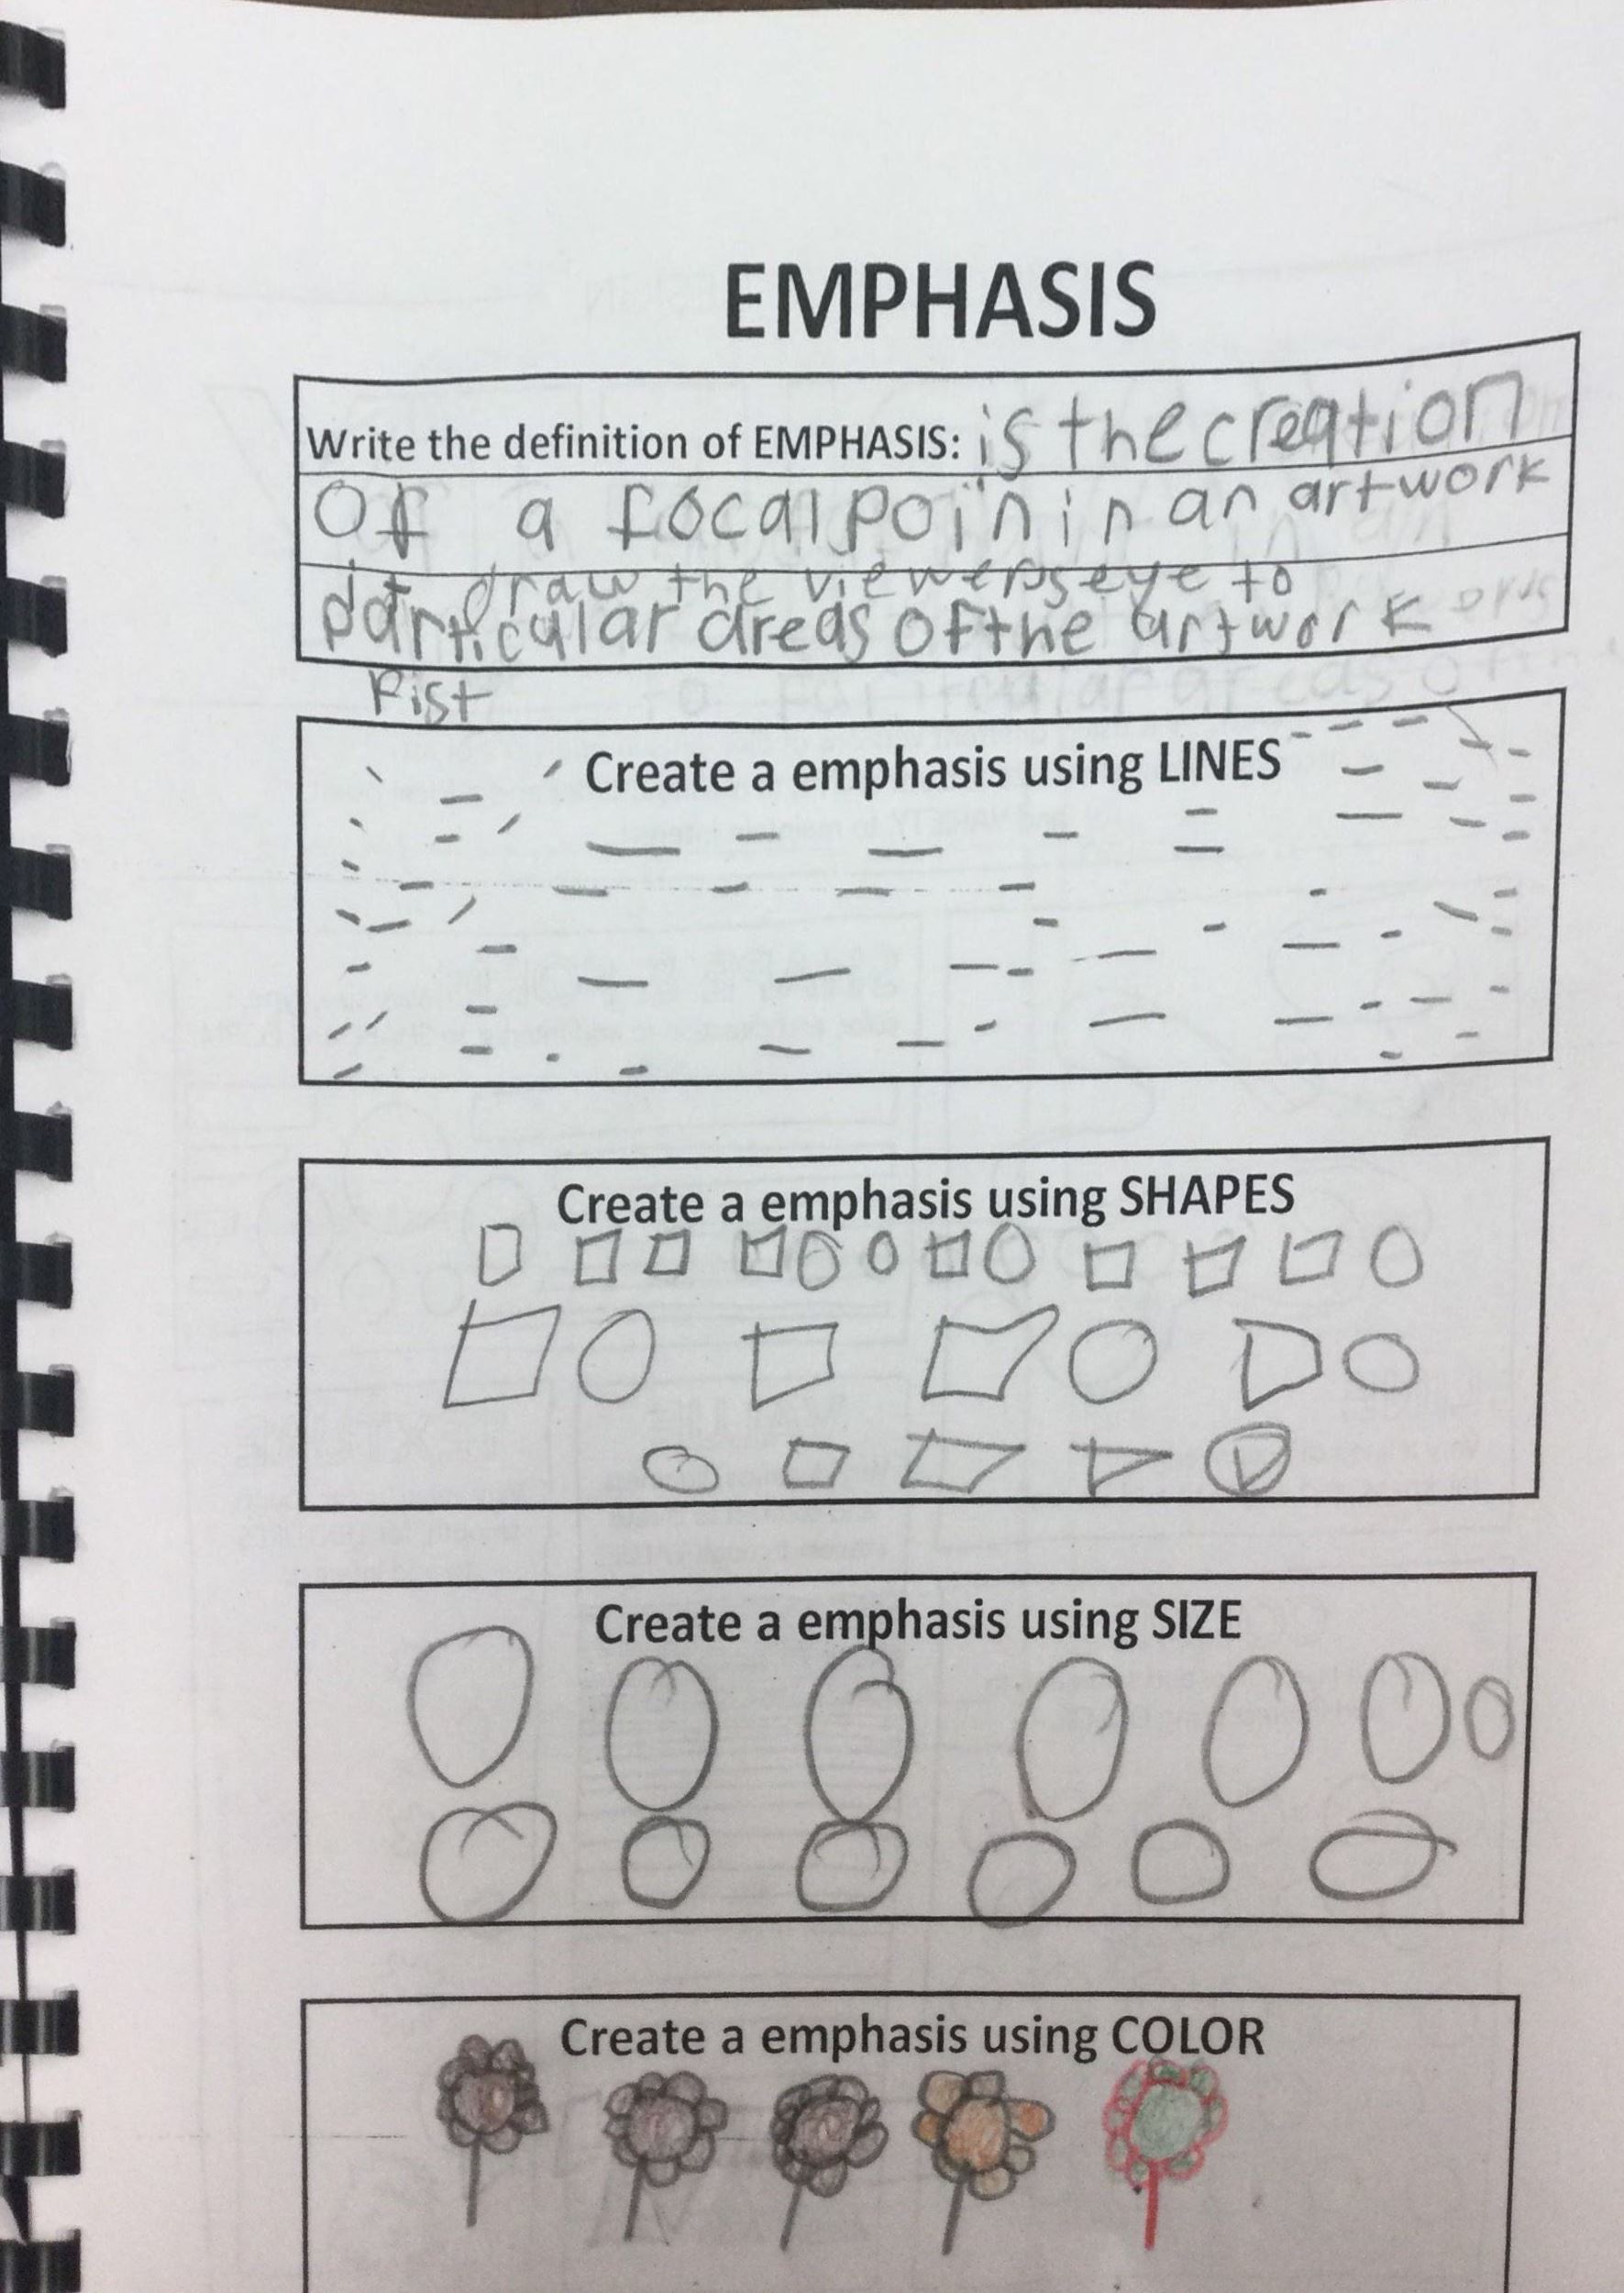 EMPHASIS
Write the definition of EMPHASIS: is the creation
Of a focal poin in an artwork
draw the viewers eye to
particular areas of the artwork
Fist
Create a emphasis using LINES
Create a emphasis using SHAPES
Create a emphasis using SIZE
Create a emphasis using COLOR